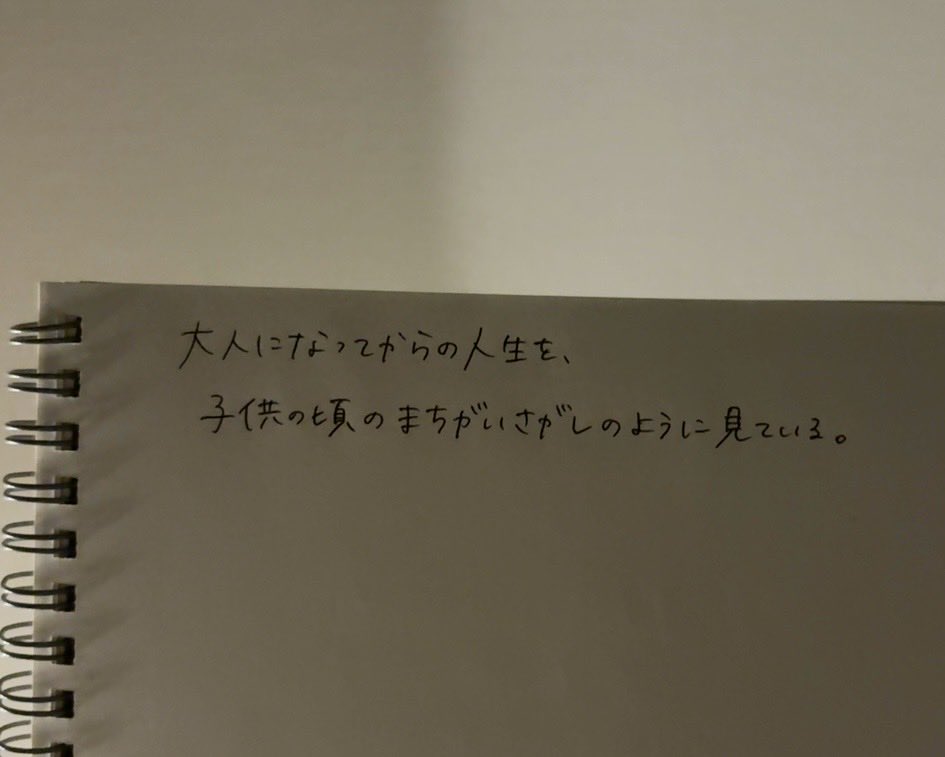 大人になってからの人生を、
子供の頃のまちがいさがしのように見ている。